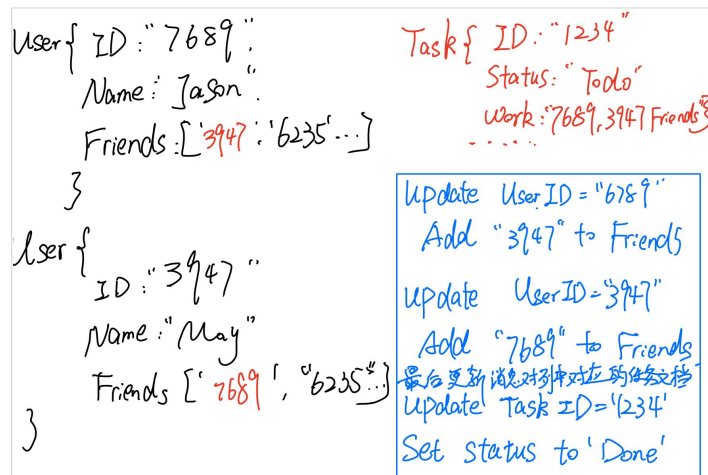 User{ ID:"7689",
Name:"Jason",
Friends:['3947','6235'...]
}
User{
ID:"3947"
Name:"May"
Friends ['7689', "6235"...]
}
Task{ ID:"1234"
Status:"Todo"
Work:"7689,3947 Friends"}
......
Update UserID="6789"
Add "3947" to Friends
Update UserID="3947"
Add "7689" to Friends
最后更新消息对列中对应的任务文档
Update Task ID='1234'
Set status to 'Done'